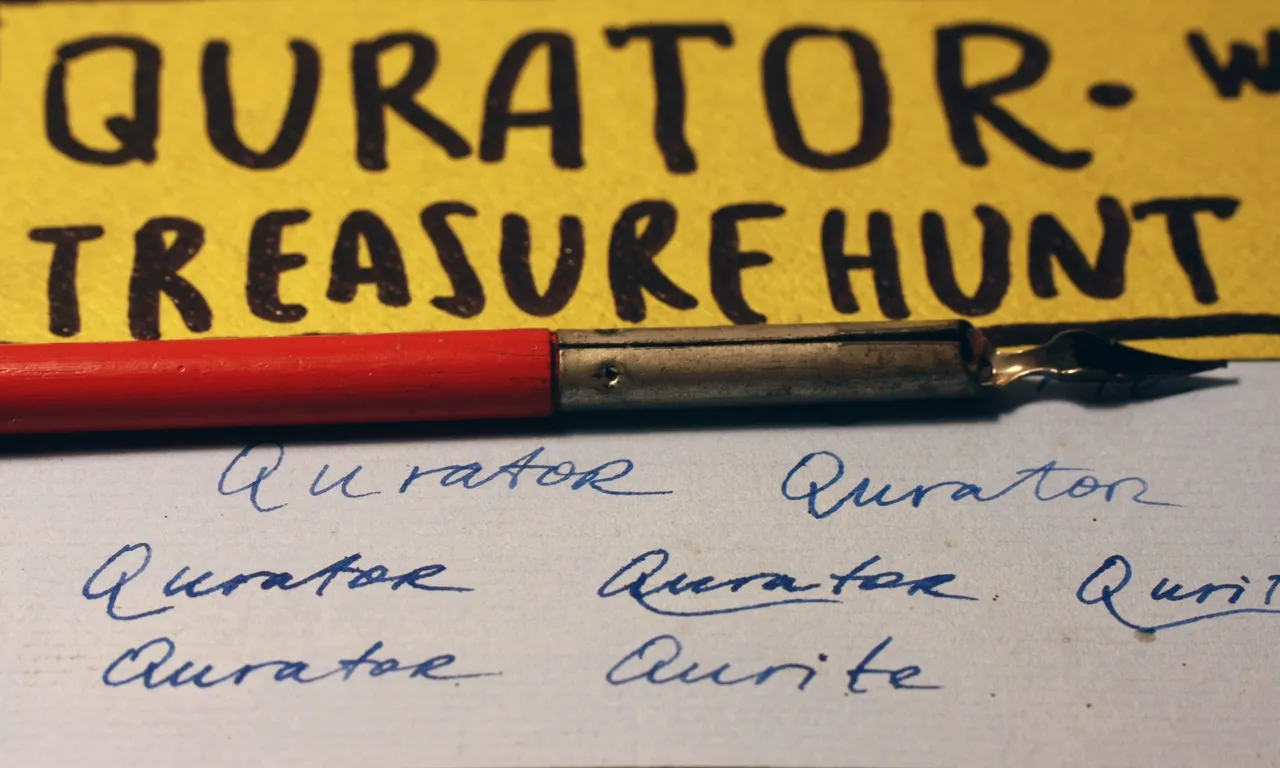 QURATOR.
TREASURE HUNT
Qurator Qurator
Qurator Qurator
Qurator Qurite